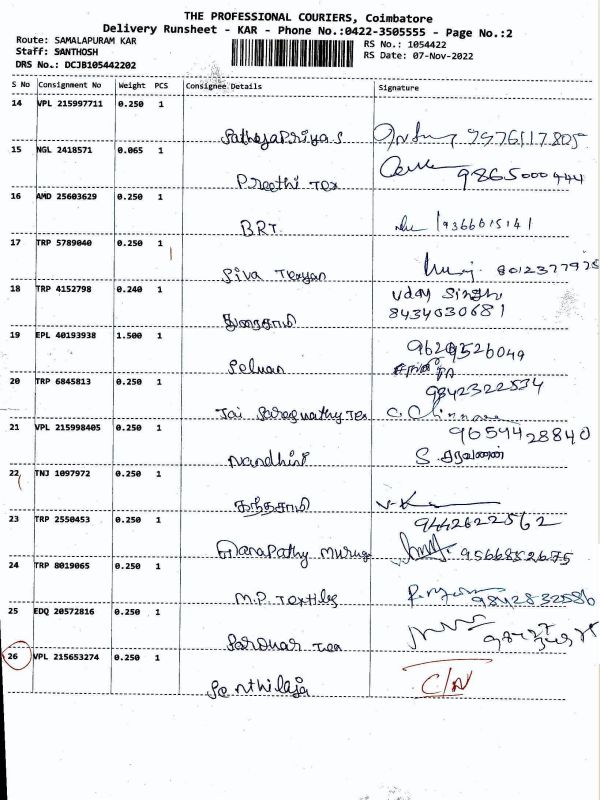 THE PROFESSIONAL COURIERS, Coimbatore
Delivery Runsheet - KAR - Phone No.:0422-3505555 - Page No.:2
Route: SAMALAPURAM KAR
Staff: SANTHOSH
DRS No.: DCJB105442202
RS No.: 1054422
RS Date: 07-Nov-2022
S No Consignment No Weight PCS Consignee Details Signature
14 VPL 215997711 0.250 1
15 NGL 2418571 0.065 1
Preethi Tex 9865000444
16 AMD 25603629 0.250 1
BRT 9366615141
17 TRP 5789040 0.250 1
Siva Texyan 8012377975
18 TRP 4152798 0.240 1 Uday Singh
துரைசாமி 8434030681
19 EPL 40193938 1.500 1
Selvan
20 TRP 6845813 0.250 1 9842322534
Jai Tex
21 VPL 215998405 0.250 1 9659428840
Nandhini S. சரவணன்
22 TNJ 1097972 0.250 1
கந்தசாமி
23 TRP 2550453 0.250 1 9442622562
Murug 9566852675
24 TRP 8019065 0.250 1
M.P. Textiles 9842832586
25 EDQ 20572816 0.250 1
26 VPL 215653274 0.250 1
Senthilaja C/N